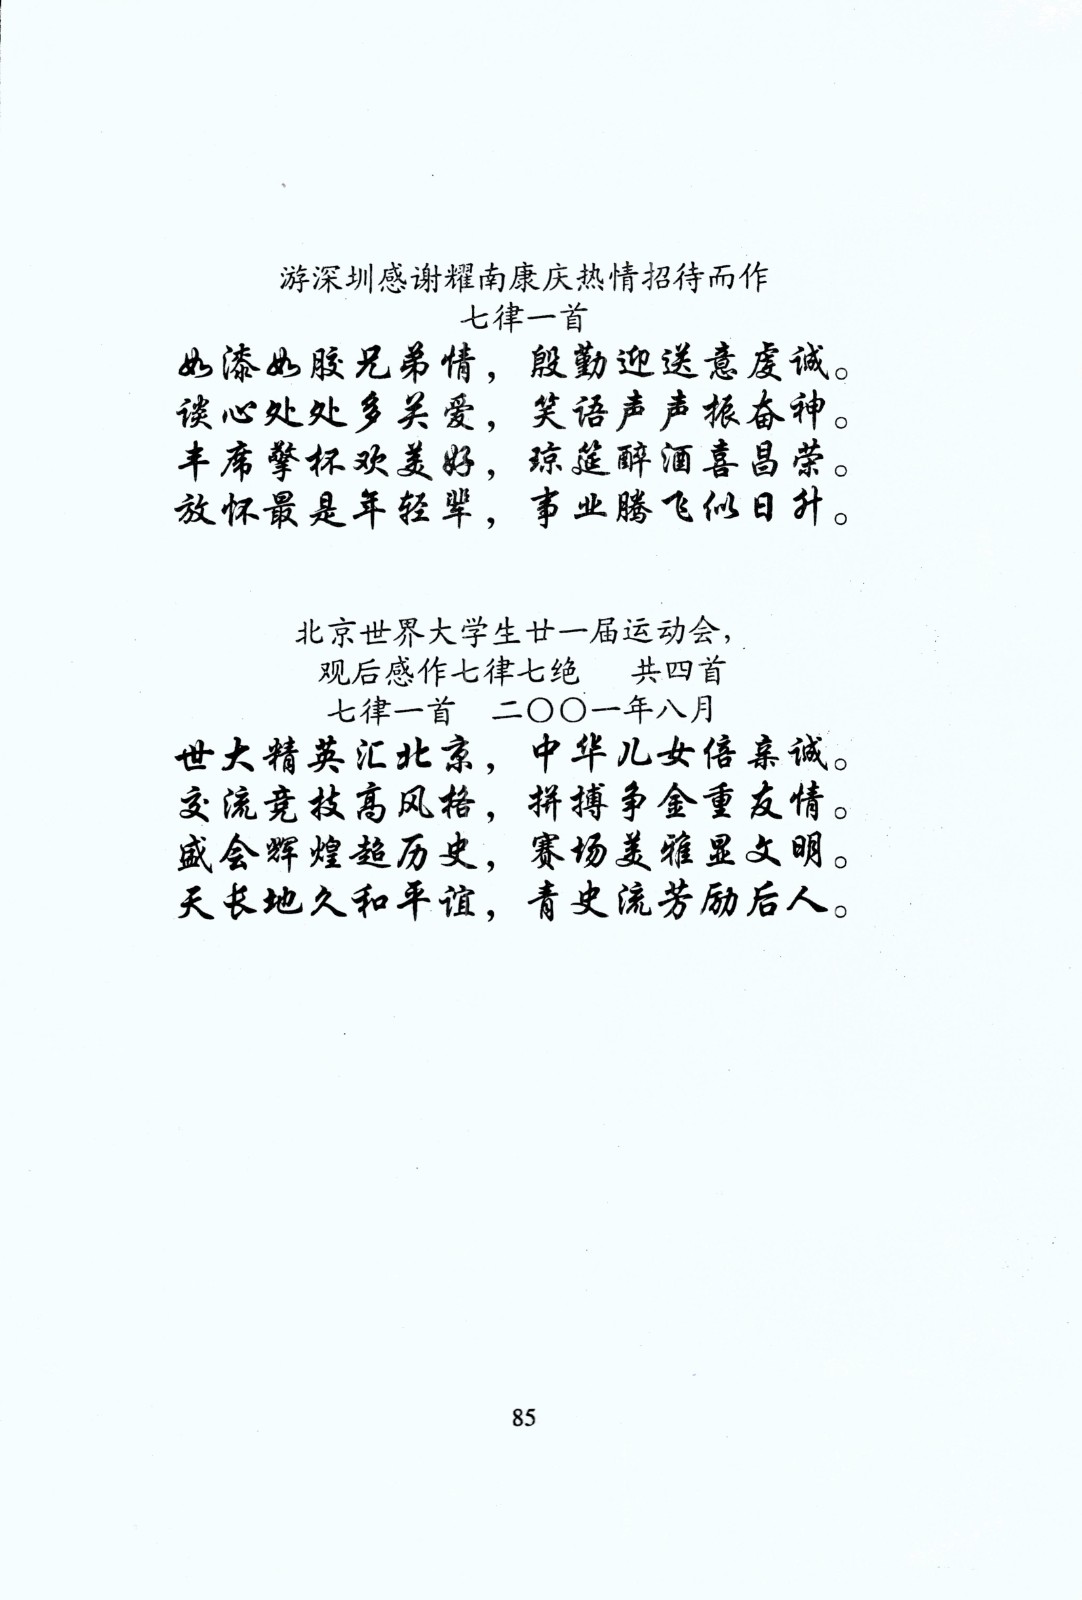 游深圳感谢耀南康庆热情招待而作
七律一首
如漆如胶兄弟情，殷勤迎送意虔诚。
谈心处处多关爱，笑语声声振奋神。
丰席擎杯欢美好，琼筵醉酒喜昌荣。
放怀最是年轻辈，事业腾飞似日升。
北京世界大学生廿一届运动会，
观后感作七律七绝 共四首
七律一首 二〇〇一年八月
世大精英汇北京，中华儿女倍亲诚。
交流竞技高风格，拼搏争金重友情。
盛会辉煌超历史，赛场美雅显文明。
天长地久和平谊，青史流芳励后人。
85